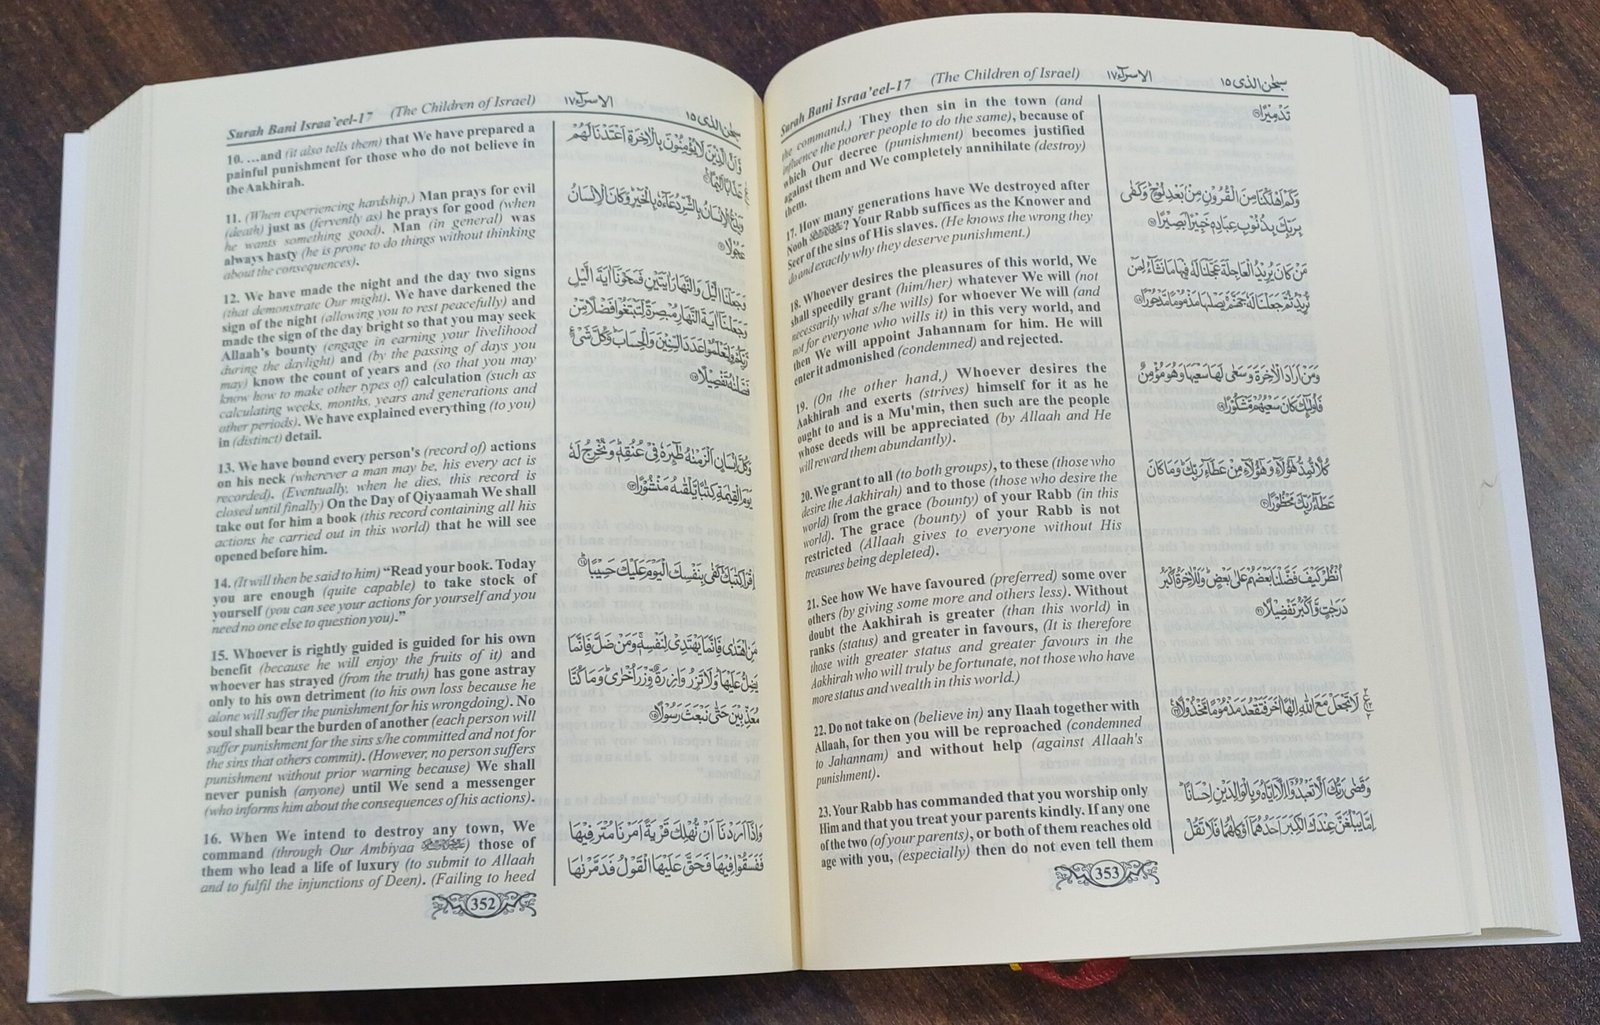 Surah Bani Israa'eel-17 (The Children of Israel) الاسراء١٧ سبحٰن الذى ١٥
10. ...and (it also tells them) that We have prepared a
painful punishment for those who do not believe in
the Aakhirah.
11. (When experiencing hardship,) Man prays for evil
(death) just as (fervently as) he prays for good (when
he wants something good). Man (in general) was
always hasty (he is prone to do things without thinking
about the consequences).
12. We have made the night and the day two signs
(that demonstrate Our might). We have darkened the
sign of the night (allowing you to rest peacefully) and
made the sign of the day bright so that you may seek
Allaah's bounty (engage in earning your livelihood
during the daylight) and (by the passing of days you
may) know the count of years and (so that you may
know how to make other types of) calculation (such as
calculating weeks, months, years and generations and
other periods). We have explained everything (to you)
in (distinct) detail.
13. We have bound every person's (record of) actions
on his neck (wherever a man may be, his every act is
recorded). (Eventually, when he dies, this record is
closed until finally) On the Day of Qiyaamah We shall
take out for him a book (this record containing all his
actions he carried out in this world) that he will see
opened before him.
14. (It will then be said to him) “Read your book. Today
you are enough (quite capable) to take stock of
yourself (you can see your actions for yourself and you
need no one else to question you).”
15. Whoever is rightly guided is guided for his own
benefit (because he will enjoy the fruits of it) and
whoever has strayed (from the truth) has gone astray
only to his own detriment (to his own loss because he
alone will suffer the punishment for his wrongdoing). No
soul shall bear the burden of another (each person will
suffer punishment for the sins s/he committed and not for
the sins that others commit). (However, no person suffers
punishment without prior warning because) We shall
never punish (anyone) until We send a messenger
(who informs him about the consequences of his actions).
16. When We intend to destroy any town, We
command (through Our Ambiyaa) those of
them who lead a life of luxury (to submit to Allaah
and to fulfil the injunctions of Deen). (Failing to heed
وَّاَنَّ الَّذِيْنَ لَا يُؤْمِنُوْنَ بِالْاٰخِرَةِ اَعْتَدْنَا لَهُمْ
عَذَابًا اَلِيْمًا
وَيَدْعُ الْاِنْسَانُ بِالشَّرِّ دُعَآءَهٗ بِالْخَيْرِ وَكَانَ الْاِنْسَانُ
عَجُوْلًا
وَجَعَلْنَا الَّيْلَ وَالنَّهَارَ اٰيَتَيْنِ فَمَحَوْنَآ اٰيَةَ الَّيْلِ
وَجَعَلْنَآ اٰيَةَ النَّهَارِ مُبْصِرَةً لِّتَبْتَغُوْا فَضْلًا مِّنْ
رَّبِّكُمْ وَلِتَعْلَمُوْا عَدَدَ السِّنِيْنَ وَالْحِسَابَ وَكُلَّ شَيْءٍ
فَصَّلْنٰهُ تَفْصِيْلًا
وَكُلَّ اِنْسَانٍ اَلْزَمْنٰهُ طٰٓئِرَهٗ فِيْ عُنُقِهٖ وَنُخْرِجُ لَهٗ
يَوْمَ الْقِيٰمَةِ كِتٰبًا يَّلْقٰىهُ مَنْشُوْرًا
اِقْرَاْ كِتٰبَكَ كَفٰى بِنَفْسِكَ الْيَوْمَ عَلَيْكَ حَسِيْبًا
مَنِ اهْتَدٰى فَاِنَّمَا يَهْتَدِيْ لِنَفْسِهٖ وَمَنْ ضَلَّ فَاِنَّمَا
يَضِلُّ عَلَيْهَا وَلَا تَزِرُ وَازِرَةٌ وِّزْرَ اُخْرٰى وَمَا كُنَّا
مُعَذِّبِيْنَ حَتّٰى نَبْعَثَ رَسُوْلًا
وَاِذَآ اَرَدْنَآ اَنْ نُّهْلِكَ قَرْيَةً اَمَرْنَا مُتْرَفِيْهَا
فَفَسَقُوْا فِيْهَا فَحَقَّ عَلَيْهَا الْقَوْلُ فَدَمَّرْنٰهَا
352
Surah Bani Israa'eel-17 (The Children of Israel) الاسراء١٧ سبحٰن الذى ١٥
the command,) They then sin in the town (and
influence the poorer people to do the same), because of
which Our decree (punishment) becomes justified
against them and We completely annihilate (destroy)
them.
17. How many generations have We destroyed after
Nooh? Your Rabb suffices as the Knower and
Seer of the sins of His slaves. (He knows the wrong they
do and exactly why they deserve punishment.)
18. Whoever desires the pleasures of this world, We
shall speedily grant (him/her) whatever We will (not
necessarily what s/he wills) for whoever We will (and
not for everyone who wills it) in this very world, and
then We will appoint Jahannam for him. He will
enter it admonished (condemned) and rejected.
19. (On the other hand,) Whoever desires the
Aakhirah and exerts (strives) himself for it as he
ought to and is a Mu'min, then such are the people
whose deeds will be appreciated (by Allaah and He
will reward them abundantly).
20. We grant to all (to both groups), to these (those who
desire the Aakhirah) and to those (those who desire the
world) from the grace (bounty) of your Rabb (in this
world). The grace (bounty) of your Rabb is not
restricted (Allaah gives to everyone without His
treasures being depleted).
21. See how We have favoured (preferred) some over
others (by giving some more and others less). Without
doubt the Aakhirah is greater (than this world) in
ranks (status) and greater in favours, (It is therefore
those with greater status and greater favours in the
Aakhirah who will truly be fortunate, not those who have
more status and wealth in this world.)
22. Do not take on (believe in) any Ilaah together with
Allaah, for then you will be reproached (condemned
to Jahannam) and without help (against Allaah's
punishment).
23. Your Rabb has commanded that you worship only
Him and that you treat your parents kindly. If any one
of the two (of your parents), or both of them reaches old
age with you, (especially) then do not even tell them
تَدْمِيْرًا
وَكَمْ اَهْلَكْنَا مِنَ الْقُرُوْنِ مِنْۢ بَعْدِ نُوْحٍ وَكَفٰى
بِرَبِّكَ بِذُنُوْبِ عِبَادِهٖ خَبِيْرًۢا بَصِيْرًا
مَنْ كَانَ يُرِيْدُ الْعَاجِلَةَ عَجَّلْنَا لَهٗ فِيْهَا مَا نَشَآءُ لِمَنْ
نُّرِيْدُ ثُمَّ جَعَلْنَا لَهٗ جَهَنَّمَ يَصْلٰىهَا مَذْمُوْمًا مَّدْحُوْرًا
وَمَنْ اَرَادَ الْاٰخِرَةَ وَسَعٰى لَهَا سَعْيَهَا وَهُوَ مُؤْمِنٌ
فَاُولٰٓئِكَ كَانَ سَعْيُهُمْ مَّشْكُوْرًا
كُلًّا نُّمِدُّ هٰٓؤُلَآءِ وَهٰٓؤُلَآءِ مِنْ عَطَآءِ رَبِّكَ وَمَا كَانَ
عَطَآءُ رَبِّكَ مَحْظُوْرًا
اُنْظُرْ كَيْفَ فَضَّلْنَا بَعْضَهُمْ عَلٰى بَعْضٍ وَلَلْاٰخِرَةُ اَكْبَرُ
دَرَجٰتٍ وَّاَكْبَرُ تَفْضِيْلًا
لَا تَجْعَلْ مَعَ اللّٰهِ اِلٰهًا اٰخَرَ فَتَقْعُدَ مَذْمُوْمًا مَّخْذُوْلًا
وَقَضٰى رَبُّكَ اَلَّا تَعْبُدُوْٓا اِلَّآ اِيَّاهُ وَبِالْوَالِدَيْنِ اِحْسَانًا
اِمَّا يَبْلُغَنَّ عِنْدَكَ الْكِبَرَ اَحَدُهُمَآ اَوْ كِلٰهُمَا فَلَا تَقُلْ
353